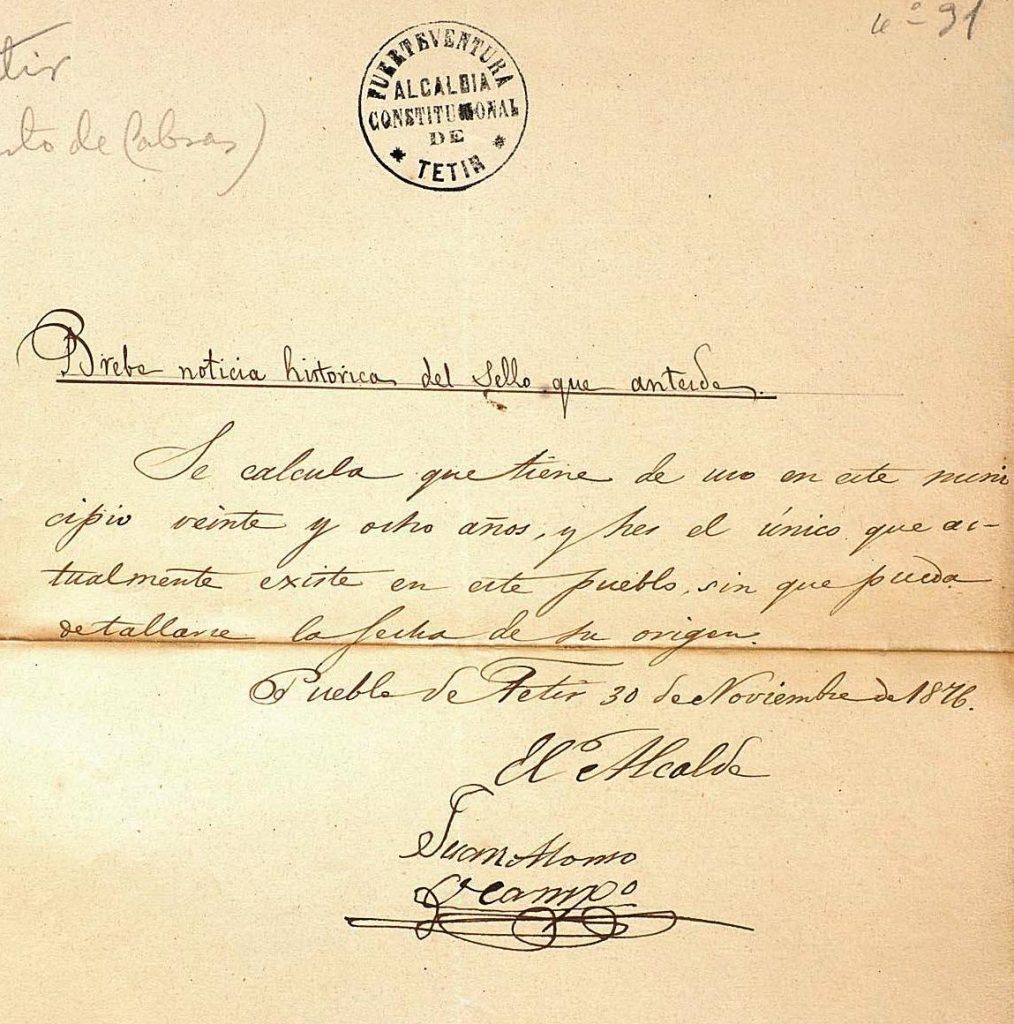 tir
rto de Cabras)
4º - 31
FUERTEVENTURA
ALCALDIA
CONSTITUCIONAL
DE
* TETIR *
Brebe noticia historica del sello que anteide.
Se calcula que tiene de uso en este muni
cipio veinte y ocho años, y hes el único que ac-
tualmente existe en este pueblo, sin que pueda
detallarse la fecha de su origen.
Pueblo de Tetir 30 de Noviembre de 1876.
El Alcalde
Juan Alonso
Ocampº